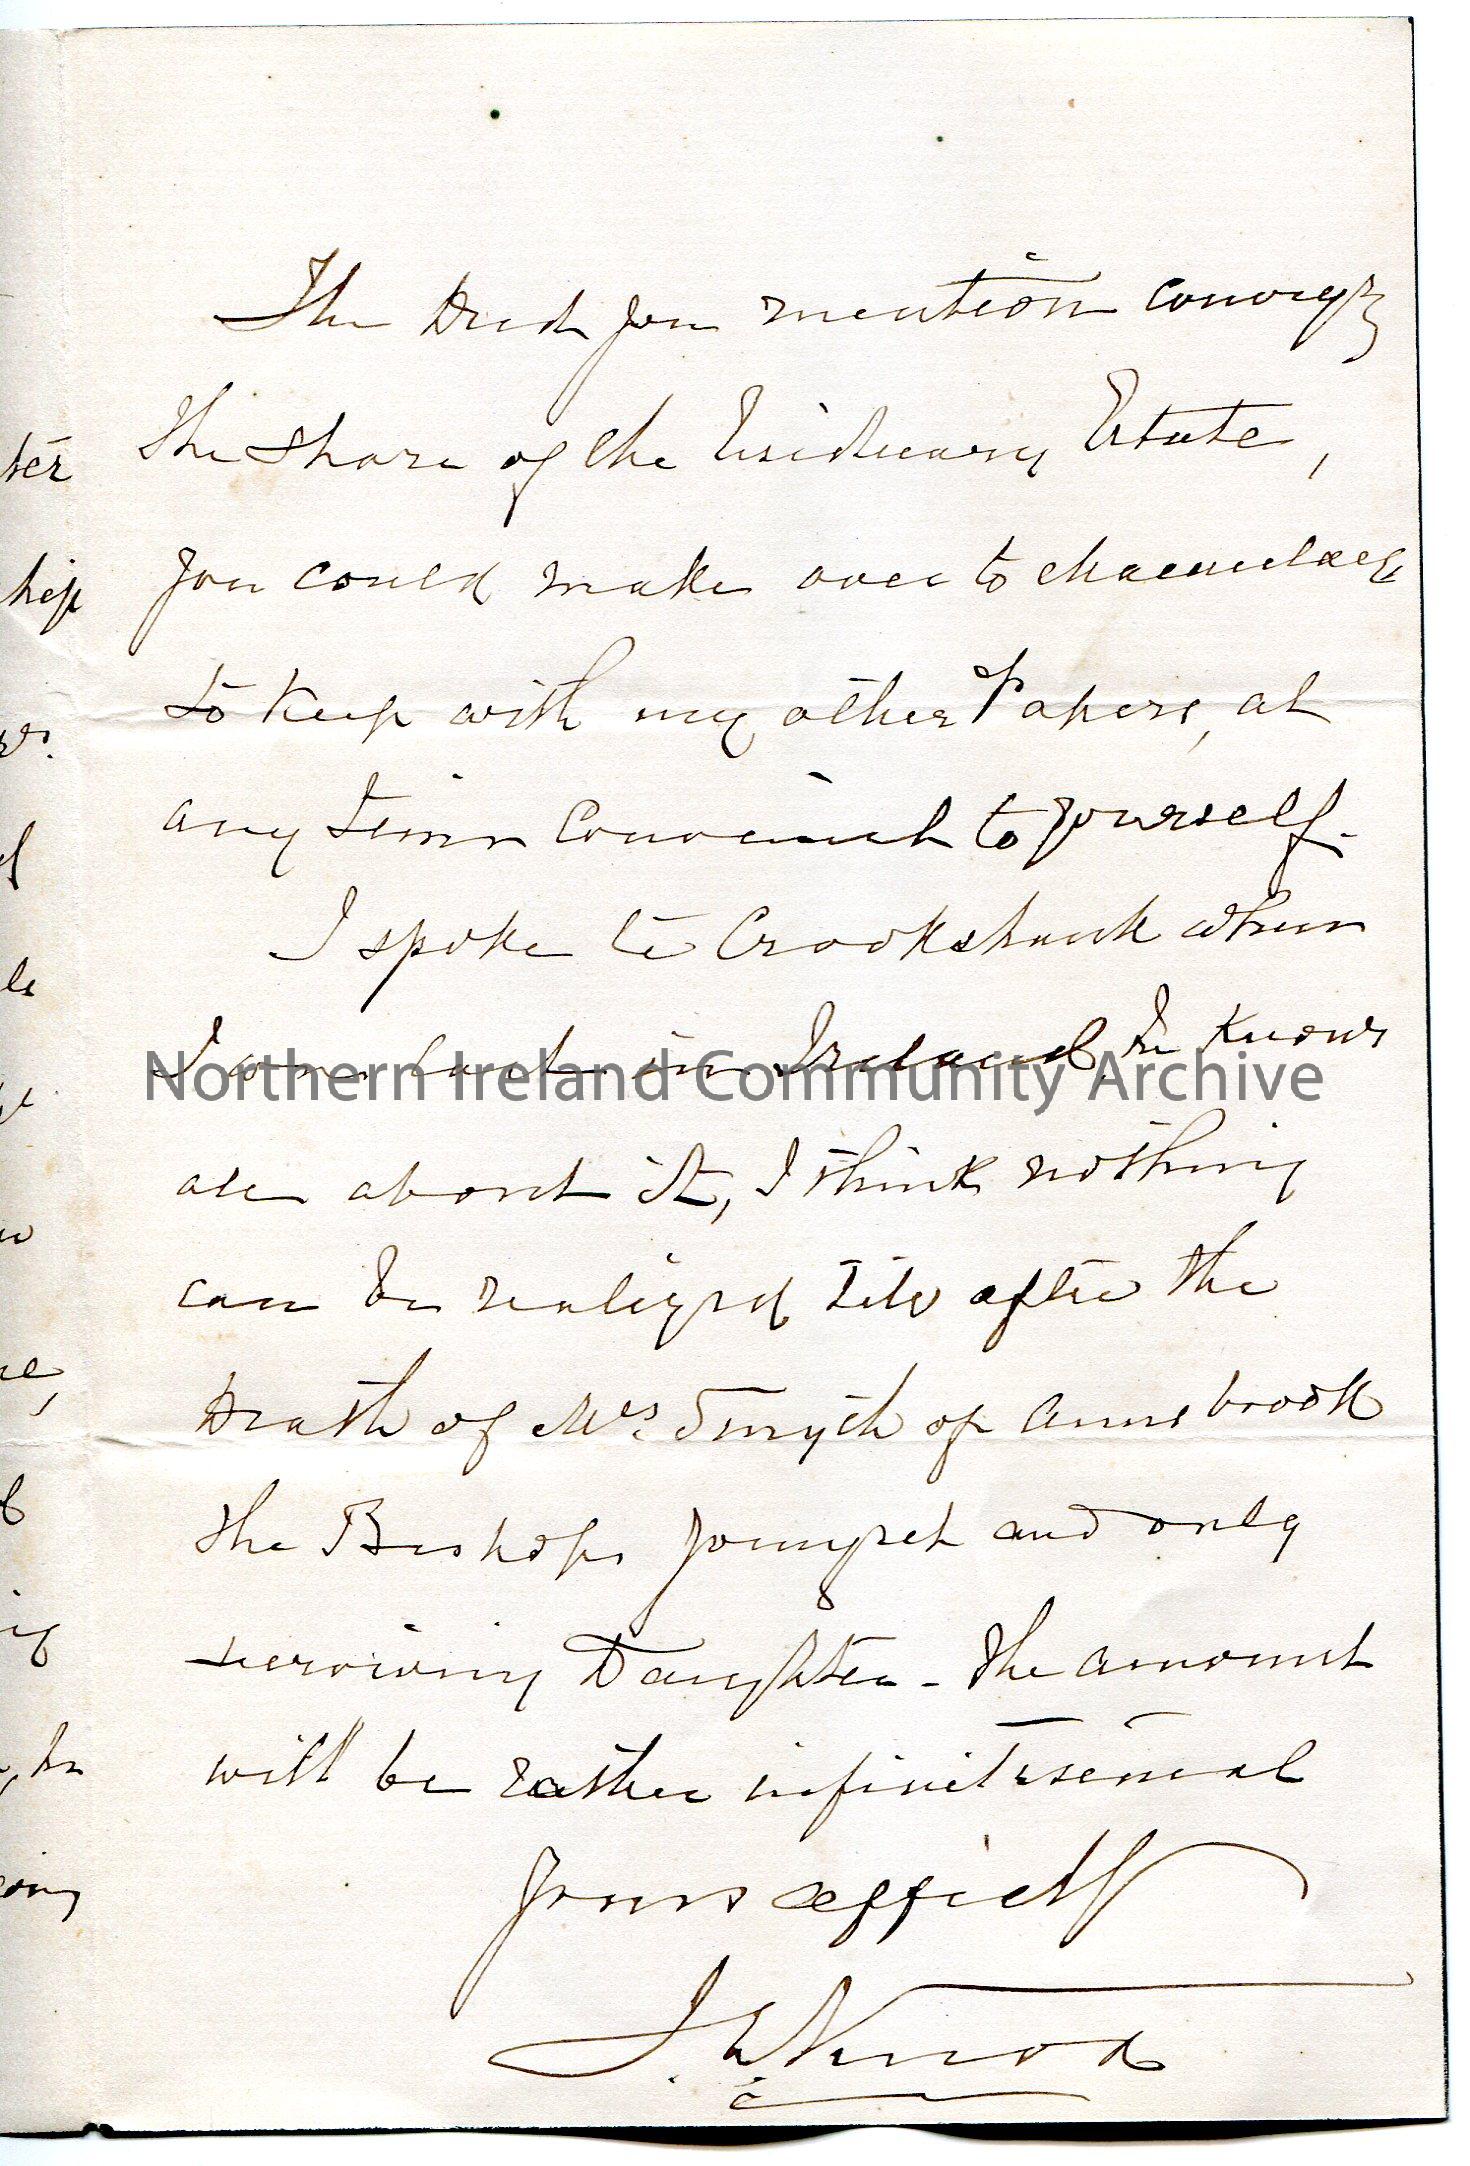 The Deed you mention conveyg
the share of the residuary Estate,
you could make over to
to keep with my other Papers, at
any time convenient to yourself.
I spoke to Crookshank when
I was last in Ireland, he knows
Northern Ireland Community Archive
all about it, I think nothing
can be realized till after the
Death of Mrs. Smyth of Annsbrook
the Bishops youngest and only
surviving Daughter - the amount
will be rather infinitesimal
Yours affectly
J. E. Knox
ter
hip